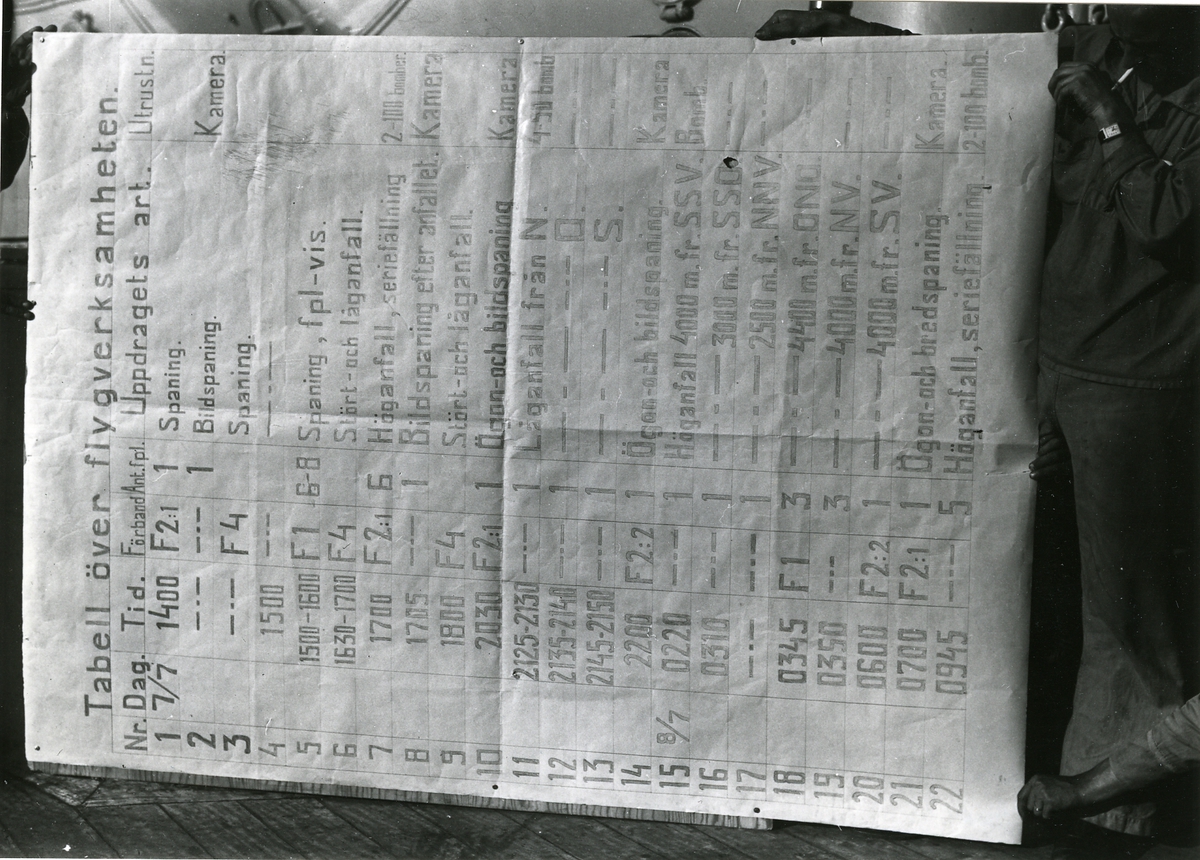 Tabell över flygverksamheten.
Nr. Dag. Tid. Förband Ant.fpl. Uppdragets art. Utrustn.
1 7/7 1400 F2:1 1 Spaning.
2 —·— —·— 1 Bildspaning. Kamera
3 —·— F4 Spaning.
4 1500 —·— —·—·—
5 1500-1600 F1 6-8 Spaning, fpl-vis.
6 1630-1700 F4 Stört-och låganfall.
7 1700 F2:1 6 Höganfall, seriefällning 2-100 bomber.
8 1705 —·— 1 Bildspaning efter anfallet. Kamera
9 1800 F4 Stört-och låganfall.
10 2030 F2:1 1 Ögon-och bildspaning Kamera
11 2125-2130 —·— 1 Låganfall från N. 4-50 bomb
12 2135-2140 —·— 1 —·—·— O. —·—
13 2145-2150 —·— 1 —·—·— S. —·—
14 2200 F2:2 1 Ögon-och bildspaning. Kamera
15 8/7 0220 —·— 1 Höganfall 4000 m.fr. SSV. Bomb
16 0310 —·— 1 —·— 3000 m.fr. SSO —·—
17 —·— —·— 1 —·— 2500 m.fr. NNV. —·—
18 0345 F1 3 —·— 4400 m.fr. ONO
19 0350 —·— 3 —·— 4000 m.fr. NV. —·—
20 0600 F2:2 1 —·— 4000 m.fr. SV. —·—
21 0700 F2:1 1 Ögon-och bredspaning. Kamera.
22 0945 —·— 5 Höganfall, seriefällning. 2-100 bomb.